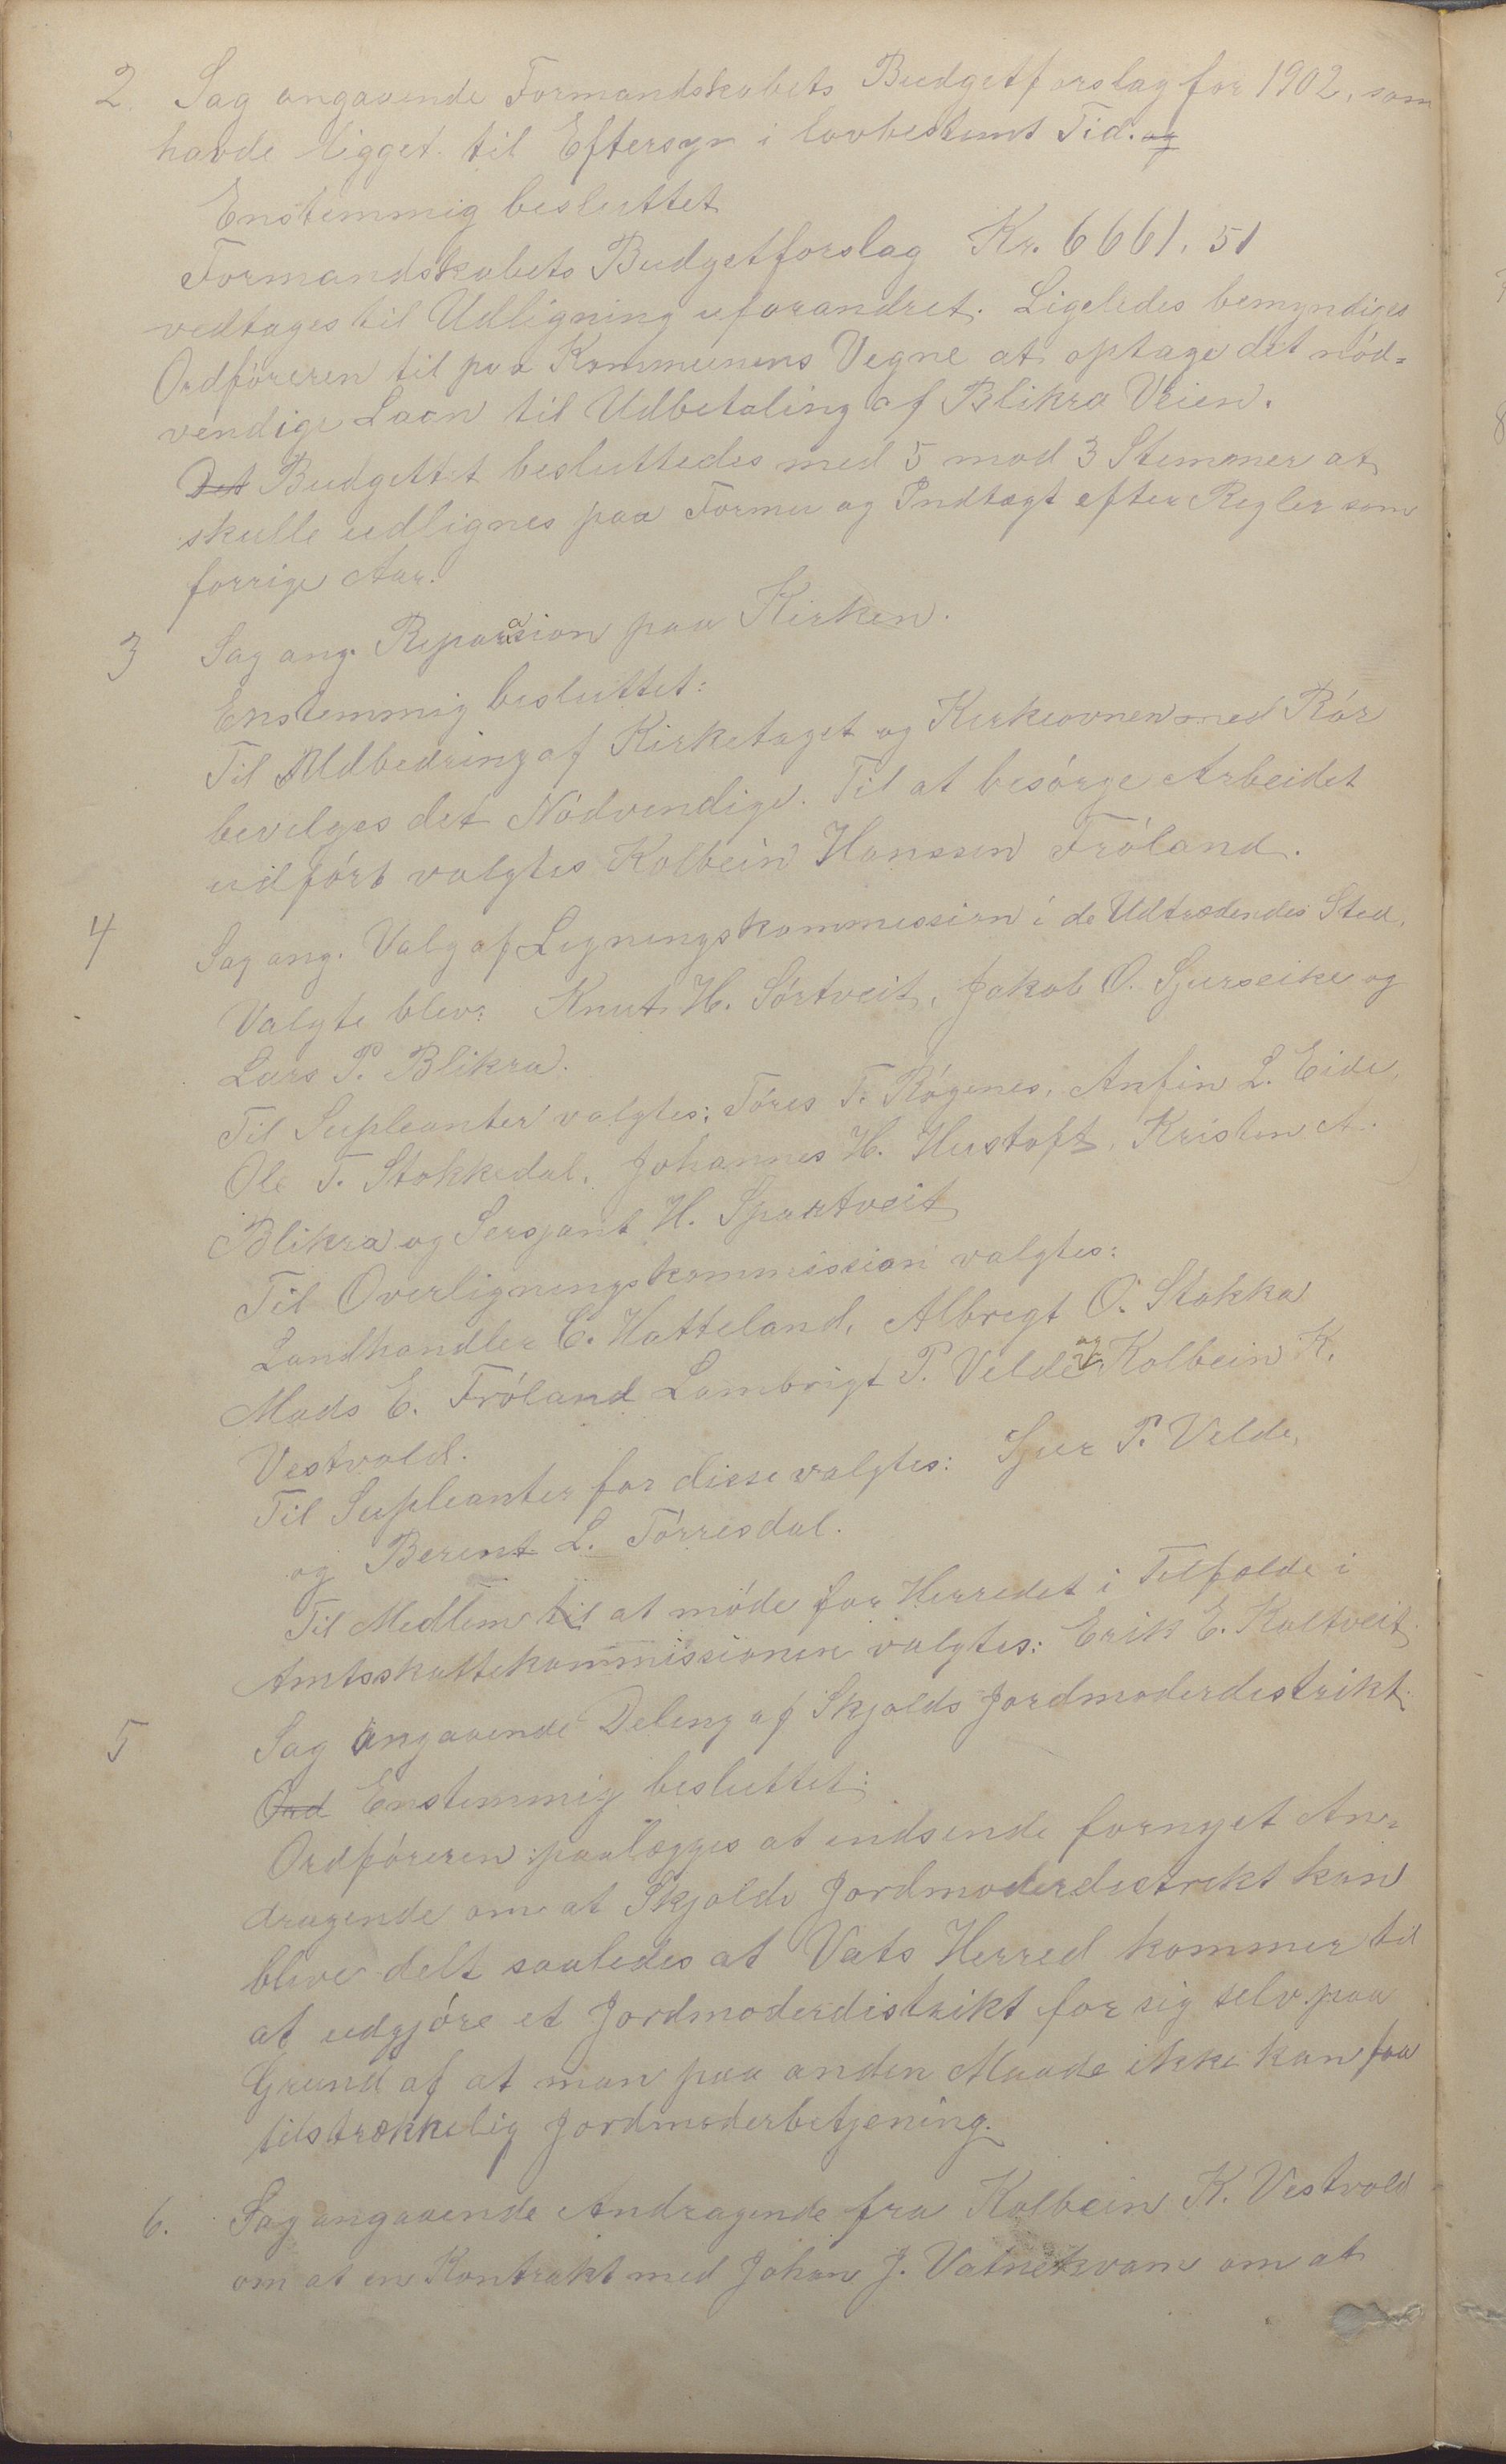 2. Sag angaaende Formandskabets Budgetforslag for 1902, som
havde ligget til Eftersyn i lovbestemt Tid. og
Enstemmig besluttet
Formandskabets Budgetforslag Kr. 6661,51
vedtages til Udligning uforandret. Ligeledes bemyndiges
Ordföreren til paa Kommunens Vegne at optage det nöd-
vendige Laan til Udbetaling af Blikra Veien.
Det Budgettet besluttedes med 5 mod 3 Stemmer at
skulle udlignes paa Formue og Indtægt efter Regler som
forrige Aar.
3 Sag ang. Reparasion paa Kirken.
Enstemmig besluttet:
Til Udbedring af Kirketaget og Kirkeovnen med Rör
bevilges det Nödvendige. Til at besörge Arbeidet
udfört valgtes Kolbein Hanssen Fröland.
4 Sag ang. Valg af Ligningskommission i de Udtrædendes Sted.
Valgte blev: Knut H. Sörtveit, Jakob O. Sjurseike og
Lars P. Blikra.
Til Supleanter valgtes: Töres T. Rögenes, Anfin L. Eide,
Ole T. Stokkedal, Johannes H. Hustoft, Kristen A.
Blikra og Sersjant H. Spartveit
Til Overligningskommission valgtes:
Landhandler C. Hatteland, Albregt O. Stokka
Mads E. Fröland Lambrigt P. Velde og Kolbein K.
Vestvold.
Til Supleanter for disse valgtes: Sjur P. Velde,
og Berent L. Törresdal.
Til Medlem til at möde for Herredet i Tilfælde i
Amtsskattekommissionen valgtes: Erik E. Kaltveit.
5 Sag angaaende Deling af Skjolds Jordmoderdistrikt.
Ord Enstemmig besluttet:
Ordföreren paalægges at indsende fornyet An-
dragende om at Skjolds Jordmoderdistrikt kan
blive delt saaledes at Vats Herred kommer til
at udgjöre et Jordmoderdistrikt for sig selv paa
Grund af at man paa anden Maade ikke kan faa
tilstrækkelig Jordmoderbetjening.
6. Sag angaaende Andragende fra Kolbein K. Vestvold
om at en Kontrakt med Johan J. Vatnekvam om at